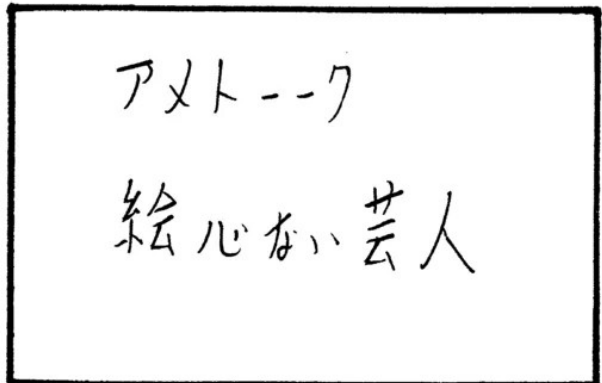 アメトーーク
絵心ない芸人